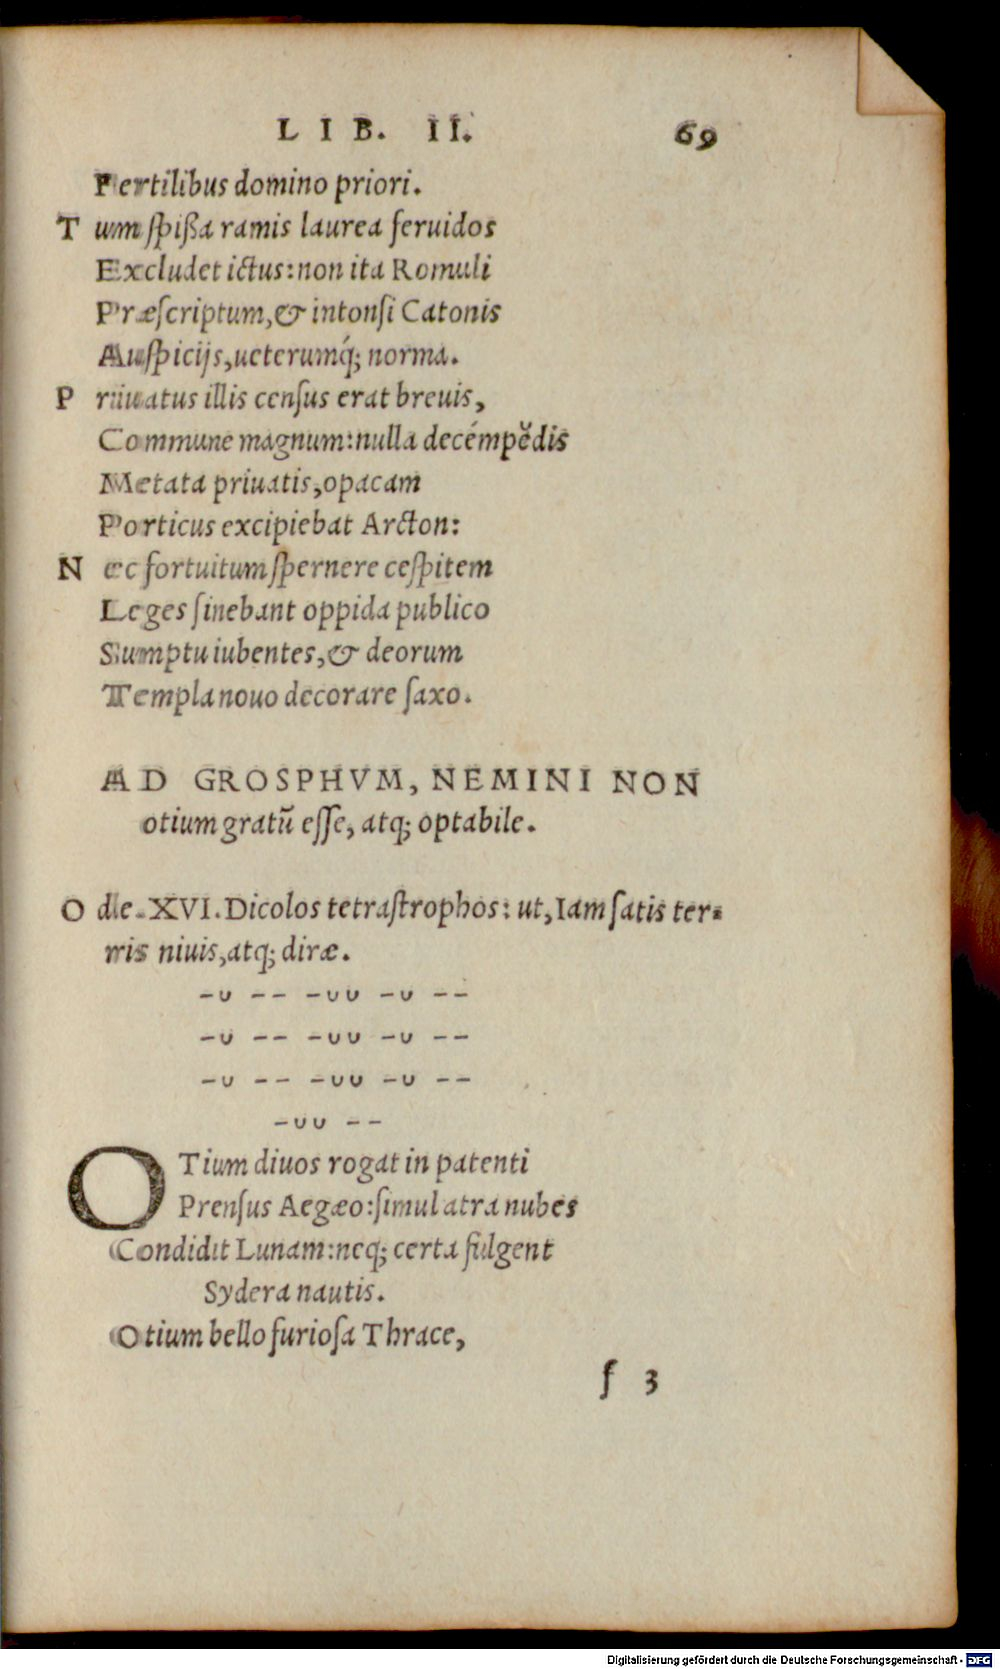 LIB. II. 69
Fertilibus domino priori.
Tum ſpißa ramis laurea feruidos
Excludet ictus: non ita Romuli
Præſcriptum, & intonſi Catonis
Auſpicijs, ueterumq́; norma.
Priuatus illis cenſus erat breuis,
Commune magnum: nulla decémpĕdis
Metata priuatis, opacam
Porticus excipiebat Arcton:
Nec fortuitum ſpernere ceſpitem
Leges ſinebant oppida publico
Sumptu iubentes, & deorum
Templa nouo decorare ſaxo.
AD GROSPHVM, NEMINI NON
otium gratũ eſſe, atq; optabile.
Ode. XVI. Dicolos tetraſtrophos: ut, Iam ſatis ter-
ris niuis, atq; diræ.
–∪ –– –∪∪ –∪ ––
–∪ –– –∪∪ –∪ ––
–∪ –– –∪∪ –∪ ––
–∪∪ ––
OTium diuos rogat in patenti
Prenſus Aegæo: ſimul atra nubes
Condidit Lunam: neq; certa fulgent
Sydera nautis.
Otium bello furioſa Thrace,
f 3
Digitalisierung gefördert durch die Deutsche Forschungsgemeinschaft - DFG